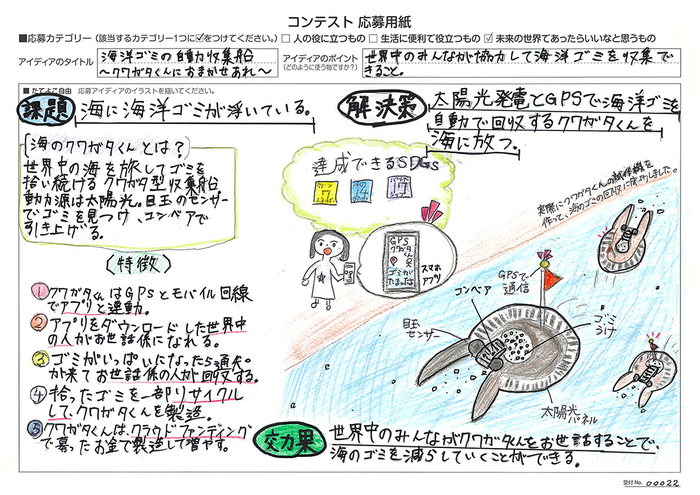 コンテスト 応募用紙
■応募カテゴリー（該当するカテゴリー1つに☑をつけてください。）□ 人の役に立つもの □ 生活に便利で役立つもの ☑ 未来の世界であったらいいなと思うもの
アイディアのタイトル
海洋ゴミの自動収集船
〜クワガタくんにおまかせあれ〜
アイディアのポイント
（どのように使う物ですか？）
世界中のみんなが協力して海洋ゴミを収集で
きること。
■たてよこ自由 応募アイディアのイラストを描いてください。
課題
海に海洋ゴミが浮いている。
解決策
太陽光発電とGPSで海洋ゴミを
自動で回収するクワガタくんを
海に放つ。
海のクワガタくんとは？
世界中の海を旅してゴミを
拾い続けるクワガタ型収集船
動力源は太陽光。目玉のセンサー
でゴミを見つけ、コンベアで
引き上げる。
達成できるSDGs
7
14
17
実際にクワガタくんの試作機を
作って、海のゴミの回収に成功しました。
GPS
クワガタ
くん
ゴミが
たまった
スマホ
アプリ
特徴
① クワガタくんはGPSとモバイル回線
でアプリと連動。
② アプリをダウンロードした世界中
の人がお世話係になれる。
③ ゴミがいっぱいになったら通知
が来てお世話係の人が回収する。
④ 拾ったゴミを一部リサイクル
して、クワガタくんを製造。
⑤ クワガタくんは、クラウドファンディング
で募ったお金で製造して増やす。
GPSで
通信
コンベア
目玉
センサー
ゴミ
うけ
太陽光
パネル
効果
世界中のみんながクワガタくんをお世話することで、
海のゴミを減らしていくことができる。
受付No. 00022